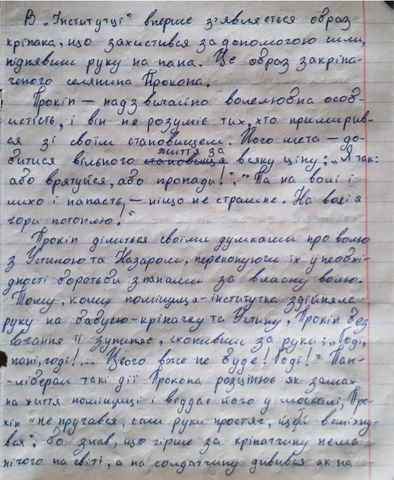 В „Інститутці" вперше з'являється образ
кріпака, що захистився за допомогою сили,
піднявши руку на пана. Це образ закріпа-
ченого селянина Прокопа.
Прокіп – надзвичайно волелюбна особ-
истість, і він не розуміє тих, хто примирив-
ся зі своїм становищем. Його мета – до-
битися вільного життя за всяку ціну: „Я так:
або врятуйся, або пропади!"; „Та на волі і
лихо і напасть – ніщо не страшне. На волі я
гори потоплю!"
Прокіп ділиться своїми думками про волю
з Устиною та Назаром, переконуючи їх у необхі-
дності боротьби з панами за власну волю.
Тому, коли поміщиця-інститутка здійняла
руку на бабусю-кріпачку та Устину, Прокіп без
вагання її зупиняє, схопивши за руки: „Годі,
пані, годі!... Цього вже не буде! Годі!" Пан-
-ліберал такі дії Прокопа розцінює як замах
на життя поміщиці і віддає його у москалі, Про-
кіп „не пручався, сам руки простяг, ще й всміхну-
вся", бо знав, що гірше за кріпатчину нема
нічого на світі, а на солдатчину дивився як на